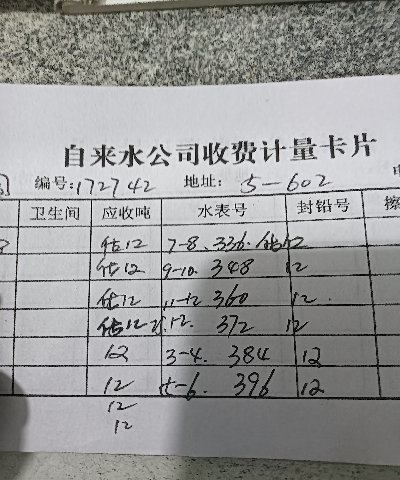 自来水公司收费计量卡片
编号:172742 地址: 5-602
卫生间 应收吨 水表号 封铅号
估12 7-8. 336. 估12
估12 9-10. 348 12
估12 11-12 360 12.
估12 1.2. 372 12
12 3-4. 384 12
12 5-6. 396 12
12
12